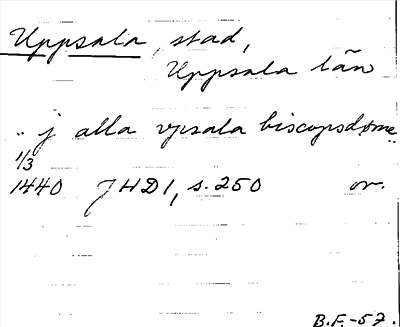 Uppsala stad,
Uppsala län
"j alla vpsala biscopsdøme"
1/3
1440 JHD1, s. 250 or.
B.F.-57.